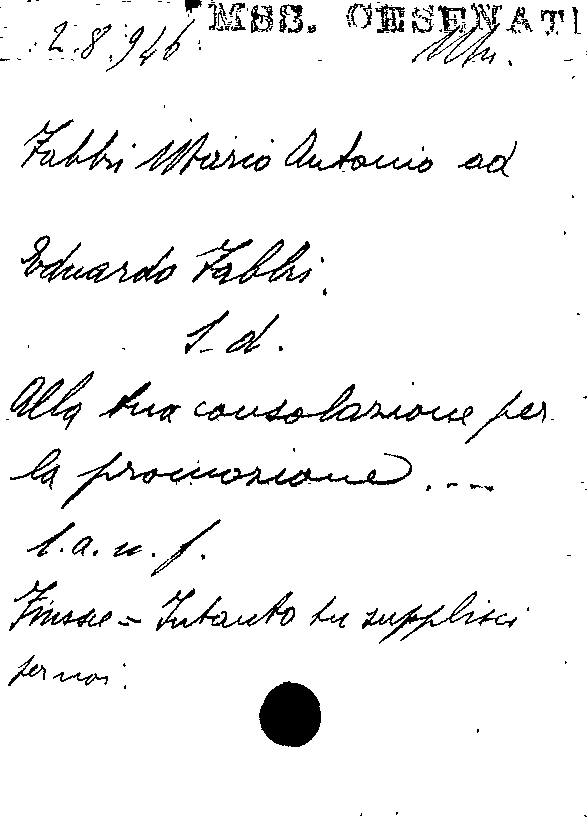 MSS. CESENATI
2.8.946
Fabbri Mario Antonio ad
Eduardo Fabbri.
S. d.
Alla tua consolazione per
la promozione....
l. a. n. f.
Finsce = Intanto tu supplisci
per noi.